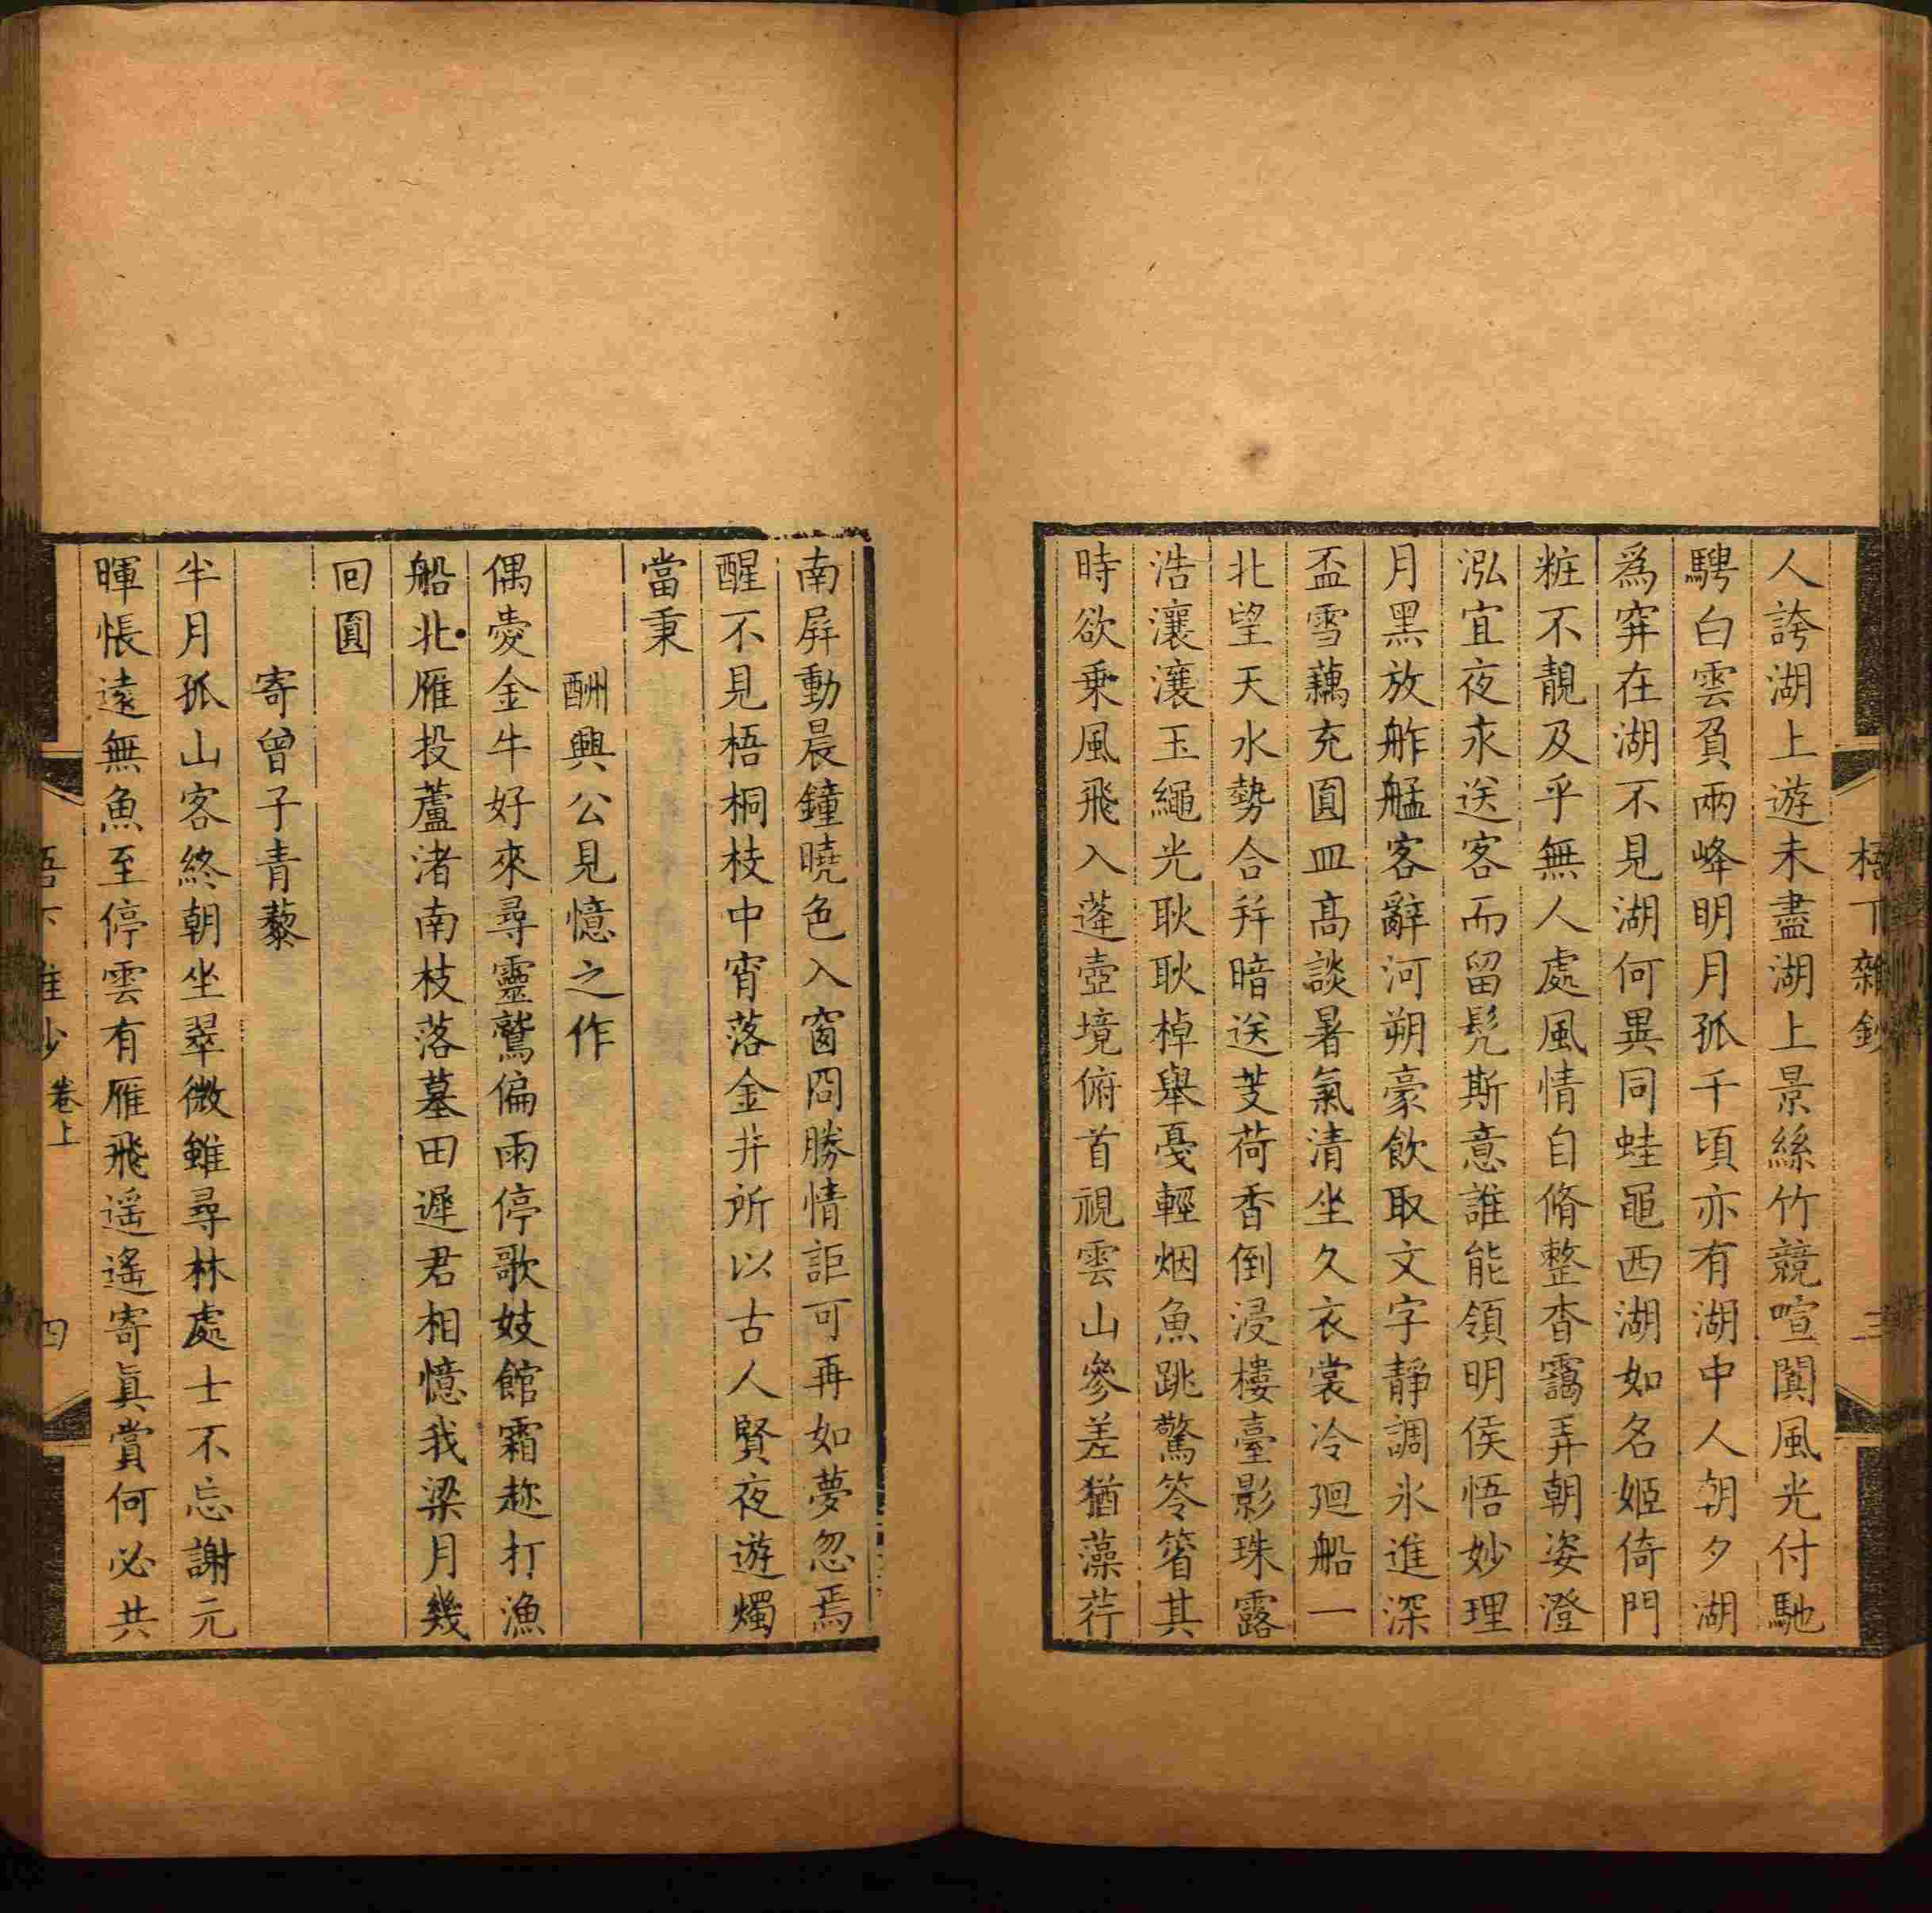 梧丁雜鈔
三
人誇湖上遊未盡湖上景絲竹競喧闐風光付馳
騁白雲負兩峰明月孤千頃亦有湖中人朝夕湖
為穽在湖不見湖何異同蛙黽西湖如名姬倚門
粧不靚及乎無人處風情自脩整杳靄弄朝姿澄
泓宜夜永送客而留髠斯意誰能領明侯悟妙理
月黑放舴艋客辭河朔豪飲取文字靜調氷進深
盃雪藕充圓皿高談暑氣清坐久衣裳冷廻船一
北望天水勢合幷暗送芰荷香倒浸樓臺影珠露
浩瀼瀼玉繩光耿耿棹舉戞輕烟魚跳驚笭箵其
時欲乗風飛入蓬壺境俯首視雲山參差猶藻荇
南屏動晨鐘曉色入窗冏勝情詎可再如夢忽焉
醒不見梧桐枝中宵落金井所以古人賢夜遊燭
當秉
酬興公見憶之作
偶愛金牛好來尋靈鷲偏雨停歌妓館霜趂打漁
船北雁投蘆渚南枝落墓田遲君相憶我梁月幾
回圓
寄曾子青藜
半月孤山客終朝坐翠微雖尋林處士不忘謝元
暉悵遠無魚至停雲有雁飛遥遙寄眞賞何必共
卷上
四